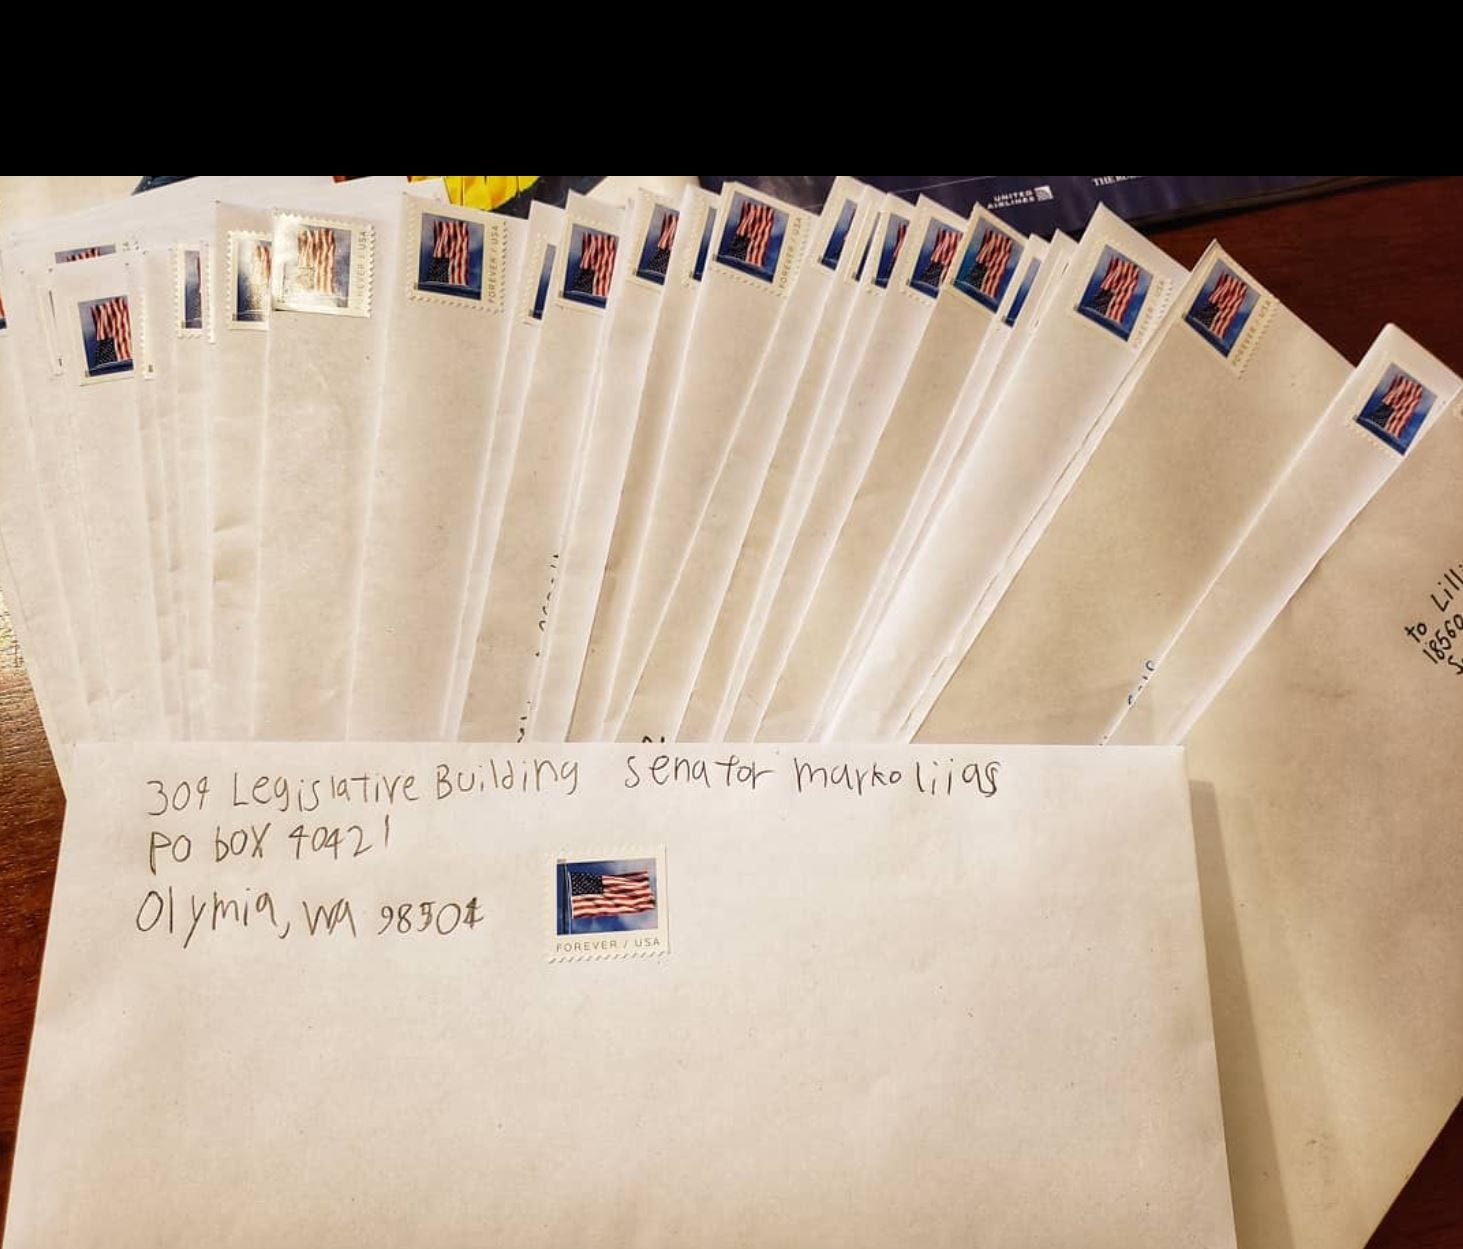 UNITED
AIRLINES
THE
FOREVER / USA
FOREVER / USA
FOREVER / USA
FOREVER / USA
FOREVER / USA
to Lilli
18560
304 Legislative Building senator marko liias
PO box 40421
Olymia, WA 98504
FOREVER / USA